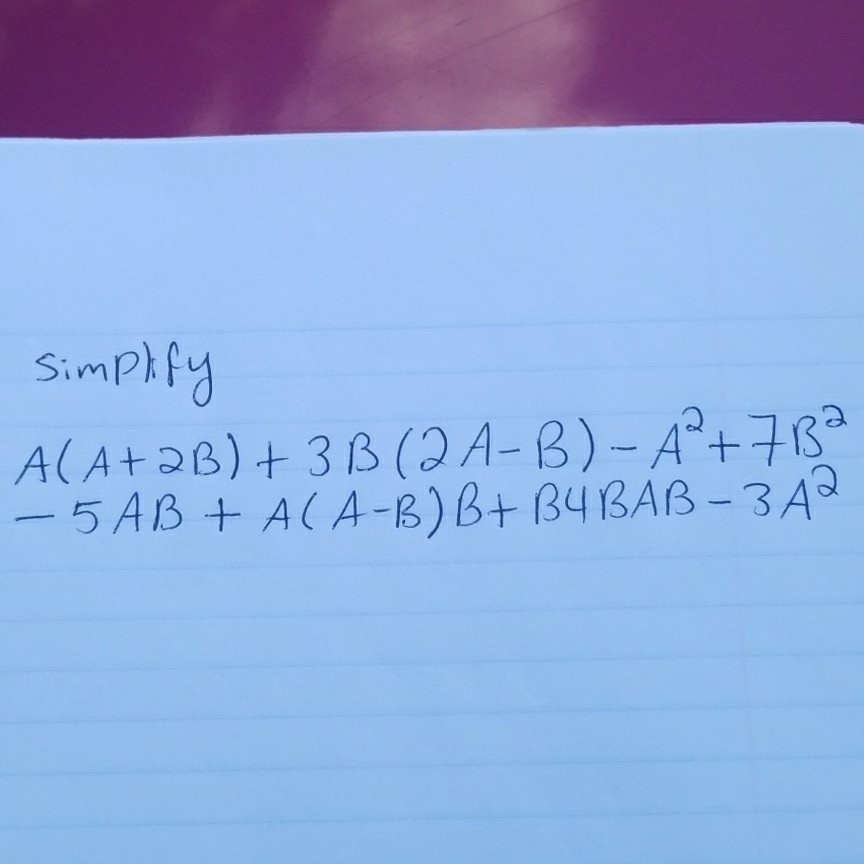 Simplify
A(A+2B)+3B(2A-B)-A²+7B²
-5AB+A(A-B)B+B4BAB-3A²